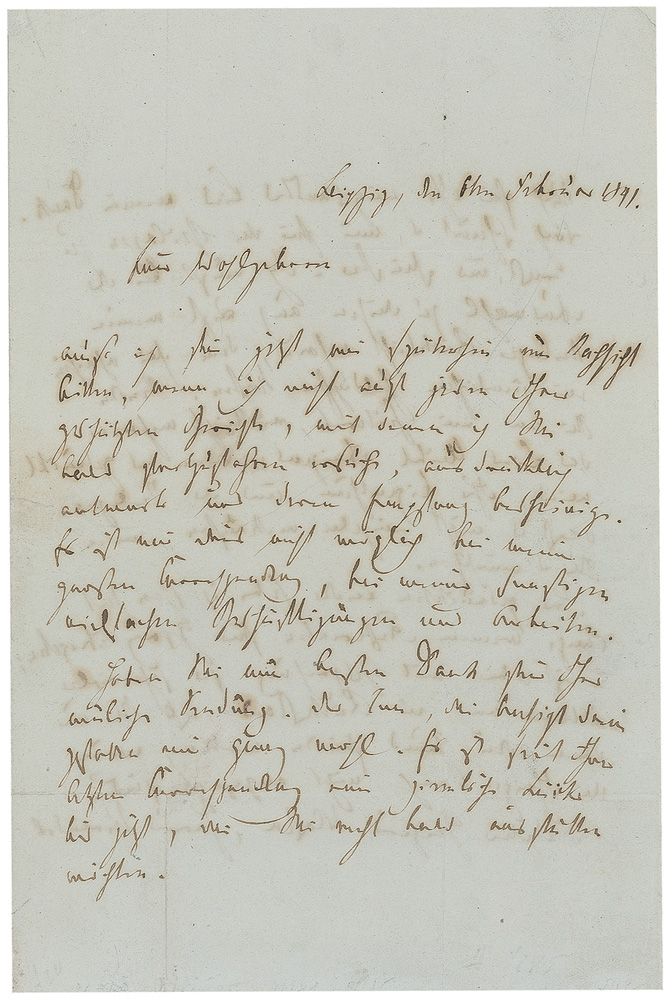 Leipzig, den 6ten Februar 1841.
Euer Wohlgeboren
muß ich für jetzt und späterhin um Nachsicht
bitten, wenn ich nicht auf jeden Ihrer
geschätzten Berichte, mit denen ich Sie
bald fortzufahren ersuche, ausdrücklich
antworte und deren Empfang bescheinige.
Es ist mir dies nicht möglich bei meiner
großen Correspondenz, bei meinen sonstigen
vielfachen Beschäftigungen und Arbeiten.
Haben Sie nun besten Dank für Ihre
neuliche Sendung. Der Ton, die
gefallen mir ganz wohl. Es ist seit Ihrer
letzten Correspondenz eine ziemliche Lücke
bis jetzt, die Sie recht bald ausfüllen
möchten.